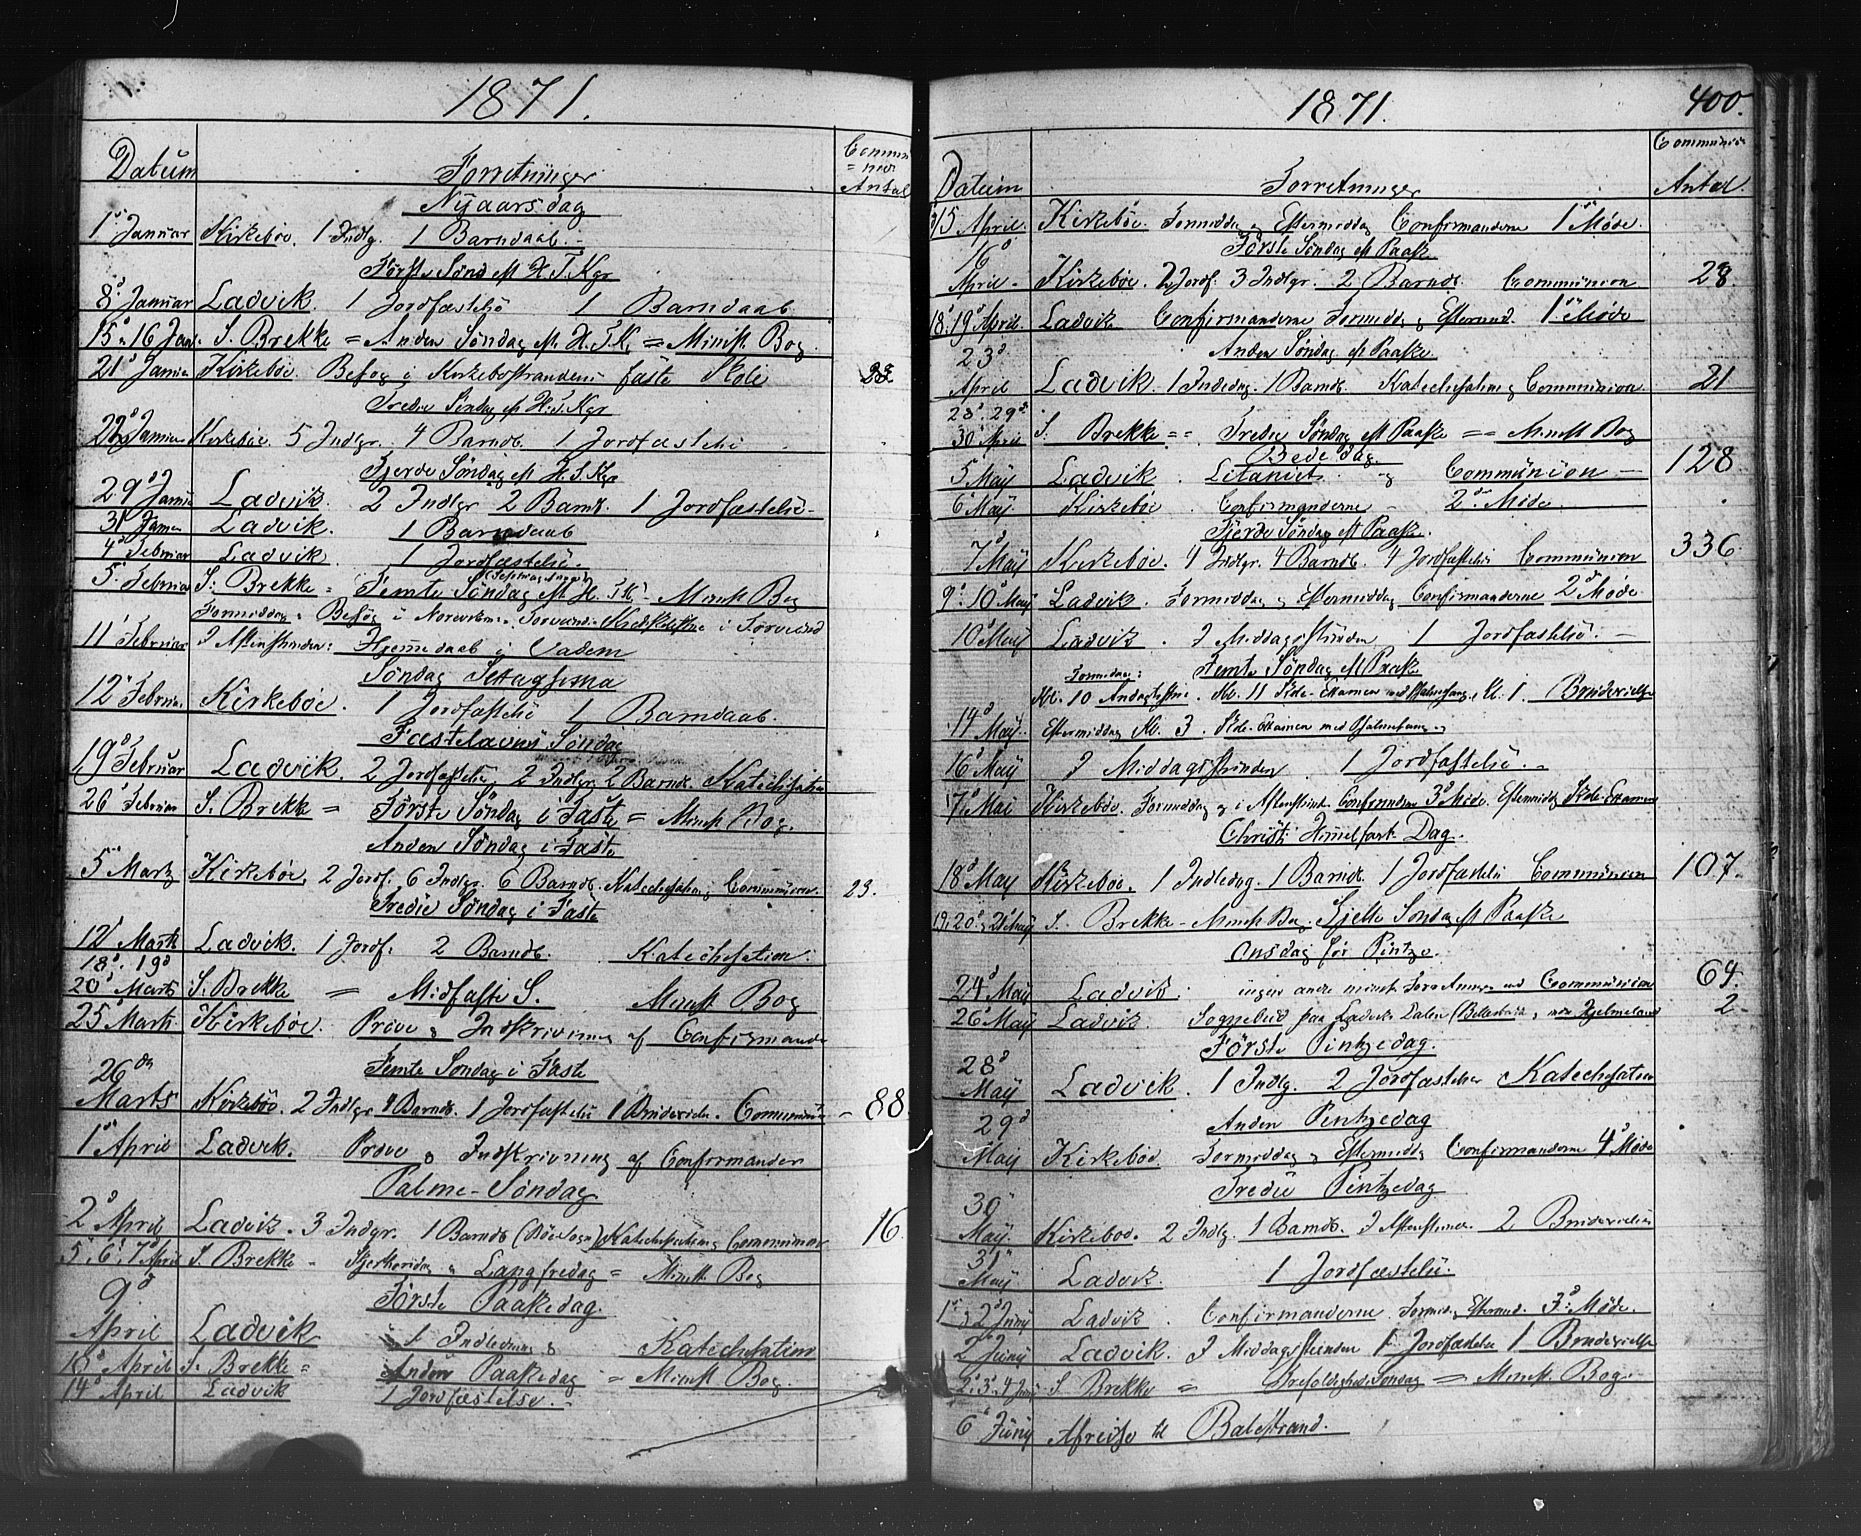 1871.
Datum
Forretninger
Commu
= nio
Antal
Nyaarsdag
1' Januar Kirkebøe. 1 Indlg. 1 Barndaab.
Første Sønd eft H. T. Kgr
8' Januar Ladvik. 1 Jordfæstelse 1 Barndaab.
15' 16 Jan. S. Brekke = Anden Søndag eft. H. T. K. = Minist. Bog
21' Januar Kirkebøe. Besøg i Kirkebøstrandens faste Skole
Tredie Søndag eft H. T. Kgr
22' Januar Kirkebøe 5 Indgr. 4 Barnd. 1 Jordfæstelse
Fjerde Søndag eft H. T. Kgr
29' Januar Ladvik. 2 Indlgr 2 Barnd. 1 Jordfæstelse
31' Januar Ladvik. 1 Barndaab
4' Februar Ladvik. 1 Jordfæstelse
5' Februar S. Brekke = Femte Søndag eft H. T. K. Minist Bog
Formiddag: Besøg i
11' Februar I Aftenstunden: Hjemmedaab i Vadem
Søndag Sexagesima
12' Februar. Kirkebøe. 1 Jordfæstelse 1 Barndaab.
Fastelavns Søndag
19' Februar Ladvik. 2 Jordfæstelse 2 Indlgr 2 Barnd. Katechisation
26' Februar S. Brekke = Første Søndag i Faste = Minist Bog.
Anden Søndag i Faste
5' Marts Kirkebøe, 2 Jordf. 6 Indlgr. 6 Barnd. Katechisation, Communion. 23.
Tredie Søndag i Faste
12' Marts Ladvik. 1 Jordf: 2 Barnd. Katechisation.
18' 19'
20' Marts S. Brekke = Midfaste S. Minist Bog
25' Marts Kirkebøe. Prøve & Indskrivning af Confirmander
Femte Søndag i Faste
26de
Marts Kirkebøe. 2 Indlgr 4 Barnd. 1 Jordfæstelse 1 Brudevielse. Communion 88
1' April Ladvik. Prøve & Indskrivning af Confirmander
Palme-Søndag
2' April Ladvik. 3 Indgr. 1 Barnd. Katechisation & Communion 16
5' 6' 7' April S. Brekke - Skjærtorsdag & Langfredag = Minist. Bog
Første Paaskedag.
9'
April Ladvik 1 Indledning & Katechisation
April S. Brekke = Anden Paaskedag = Minist Bog.
14' April Ladvik 1 Jordfæstelse.
1871. 400.
Datum
Forretninger
Communion
Antal
15 April. Kirkebøe. Formiddag & Eftermiddag Confirmanderne 1' Møde.
Første Søndag eft Paaske
16'
April Kirkebøe. 2 Jordf: 3 Indlgr. 2 Barnd. Communion 28
18' 19' April. Ladvik Confirmanderne Formidd & Efterm. 1' Møde
Anden Søndag eft Paaske.
23'
April Ladvik. 1 Indledg. 1 Barnd. Katechisation & Communion 21
28' 29'
30' April S. Brekke == Tredie Søndag eft Paaske == Minist Bog
Bededag.
5' May Ladvik. Litaniet & Communion 128
6' May Kirkebøe. Confirmanderne 2' Møde.
Fjerde Søndag eft Paaske.
7'
May Kirkebøe. 4 Indlgr. 4 Barnd. 4 Jordfæstelse Communion 336
9' 10' May Ladvik. Formiddag & Eftermiddag Confirmanderne 2' Møde
10' May Ladvik. I Middagsstunden 1 Jordfæstelse.
Femte Søndag eft Paaske
Formiddag:
Kl. 10 Andagtstime. Kl. 11 Side-Examen med Psalmesang, Kl. 1. Brudevielse
14'
May Eftermiddag Kl. 3. Side-Examen med Psalmesang.
16' May I Middagsstunden 1 Jordfæstelse.
17' Mai Kirkebøe. Formiddag & i Aftenstund Confirmderne 3' Møde. Eftermiddag Side-Examen
Christi Himmelfart Dag.
18' May Kirkebøe. 1 Indledg. 1 Barnd. 1 Jordfæstelse Communion 107.
19' 20' & 21' May S. Brekke - Minist Bog. Sjette Søndag eft Paaske
Onsdag før Pintze.
24' May Ladvik: ingen andre minist Forretninger end Communion 64.
26' May Ladvik. Sognebud paa Ladviks Dalen 2
Første Pintzedag.
28'
May Ladvik. 1 Indlg. 2 Jordfæstelser Katechisation
Anden Pintzedag
29'
May Kirkebøe. Formiddag & Eftermiddag Confirmanderne 4' Møde
Tredie Pintzedag
30'
May. Kirkebøe. 2 Indlg. 1 Barnd. I Aftenstunden. 2 Brudevielser
31'
May Ladvik. 1 Jordfæstelse.
1' & 2' Juny Ladvik. Confirmanderne Formid. & Efterm. 3' Møde.
2' Juny Ladvik. I Middagsstunden 1 Jordfæstelse 1 Brudevielse
2' 3' 4' Juny S. Brekke = Trefoldigheds Søndag = Minist Bog.
6' Juny Afreise til Balestrand.